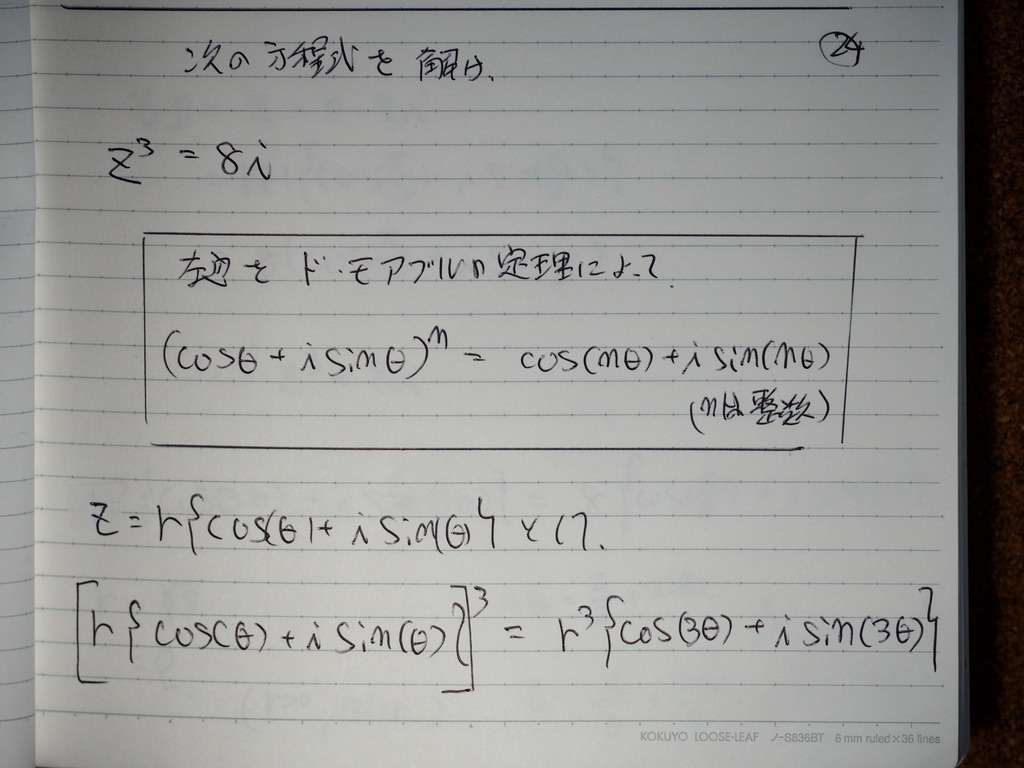 次の方程式を解け、 24
z³ = 8i
左辺をド・モアブルの定理によって
(cosθ + i sinθ)ⁿ = cos(nθ) + i sin(nθ)
(nは整数)
z = r{cos(θ) + i sin(θ)} として、
[r{cos(θ) + i sin(θ)}]³ = r³{cos(3θ) + i sin(3θ)}
KOKUYO LOOSE-LEAF ノ-S836BT 6 mm ruled×36 lines